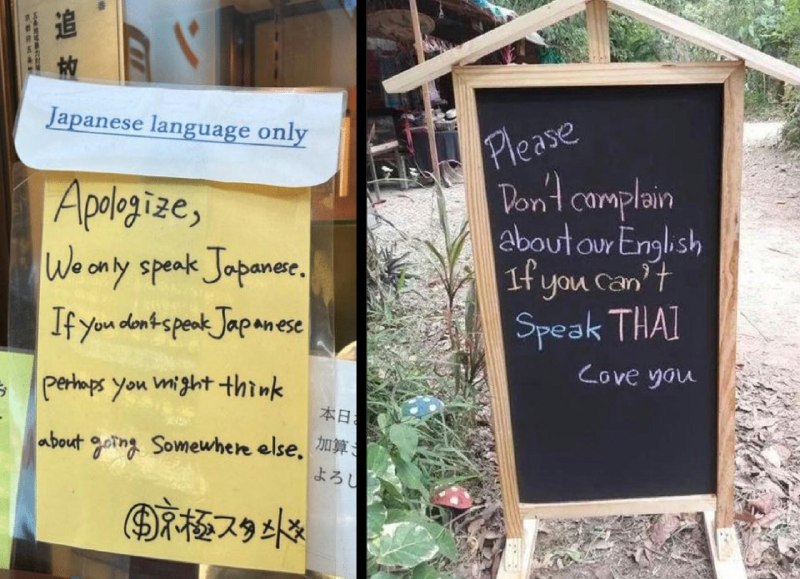 追放
Japanese language only
Apologize,
We only speak Japanese.
If you don't speak Japanese
perhaps you might think
about going Somewhere else.
京極スタンド
本日
加算
よろし
Please
Don't complain
about our English
If you can't
Speak THAI
Love you